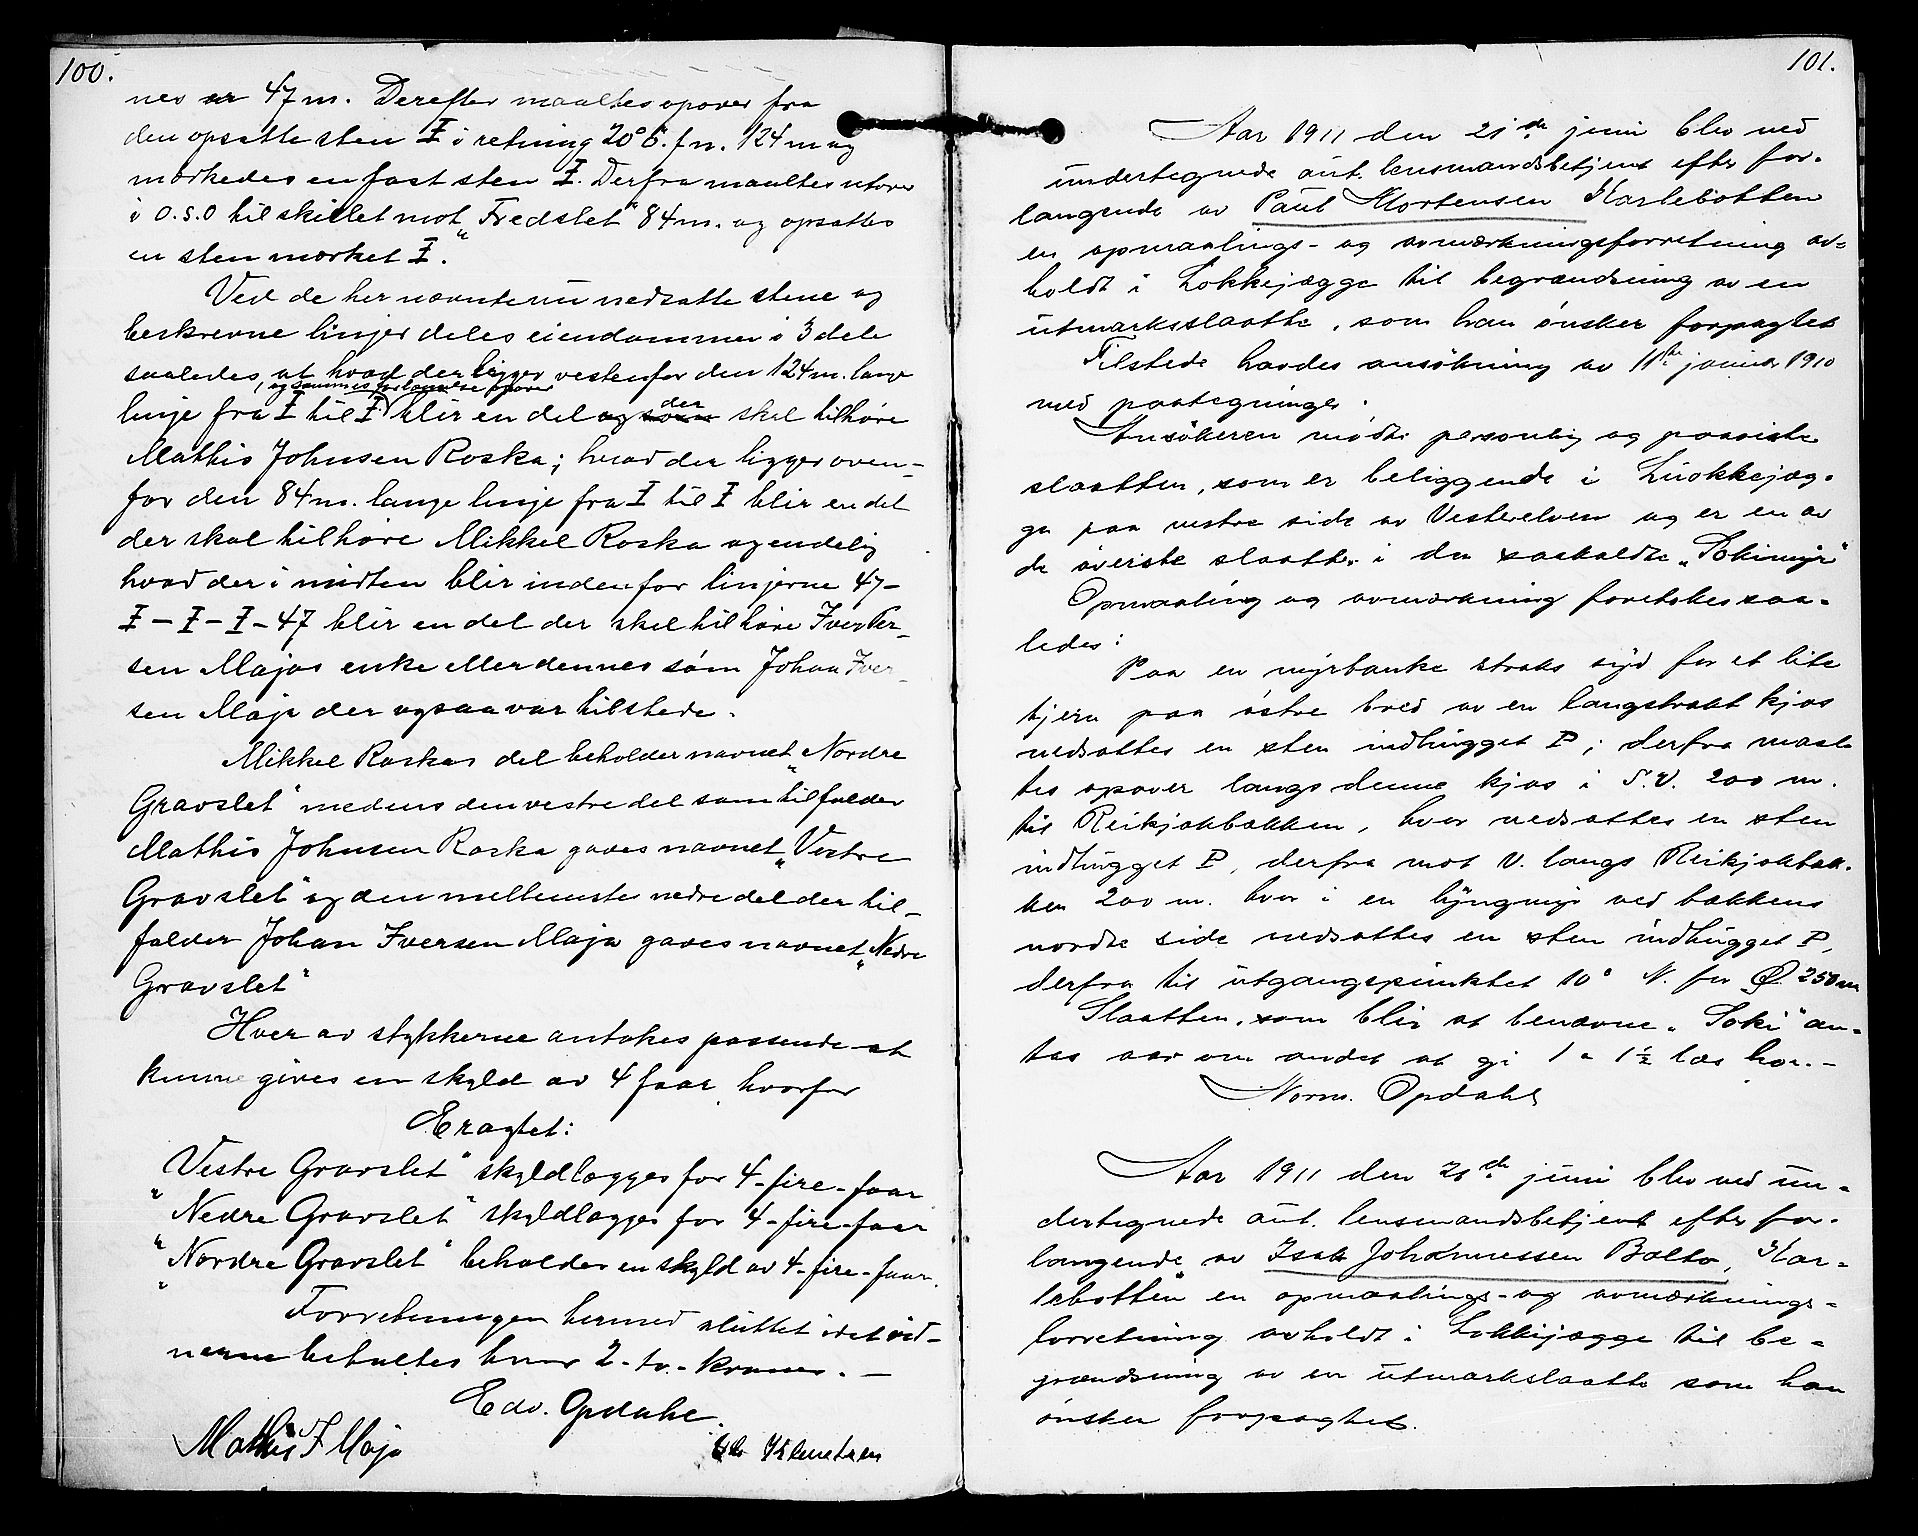 100.
nes er 47 m. Derefter maaltes opover fra
den opsatte sten I i retning 20° ö. f. n. 124 m og
merkedes en fast sten I. Derfra maaltes utover
i O.S.O til skillet mot „Fredslet" 84 m. og opsattes
en sten merket I.
Ved de her nævnte nu nedsatte stene og
beskrevne linjer deles eiendommen i 3 dele
saaledes at hvad der ligger vestenfor den 124 m. lange
, og sammes forlængelse opover
linje fra I til I blir en del og som der skal tilhöre
Mathis Johnsen Roska; hvad der ligger oven-
for den 84 m. lange linje fra I til I blir en del
der skal tilhöre Mikkel Roska og endelig
hvad der i midten blir indenfor linjerne 47-
I – I – I – 47 blir en del der skal tilhöre Iver Per-
sen Majas enke eller dennes sön Johan Iver-
sen Maja der ogsaa var tilstede.
Mikkel Roskas del beholder navnet „Nordre
Gravslet" medens den vestre del som tilfalder
Mathis Johnsen Roska gaves navnet „Vestre
Gravslet" og den mellemste nedre del der til-
falder Johan Iversen Maja gaves navnet „Nedre
Gravslet"
Hver av stykkerne antokes passende at
kunne gives en skyld av 4 faar hvorfor
Eragtet:
„Vestre Gravslet" skyldlægges for 4-fire-faar
„Nedre Gravslet" skyldlægges for 4-fire-faar
„Nordre Gravslet" beholder en skyld av 4-fire-faar.
Forretningen hermed sluttet idet vid-
nerne betaltes hver 2-to-kroner. –
Edv. Opdahl.
Mathis I Maja
Klemetsen
101.
Aar 1911 den 21de juni blev ved
undertegnede aut. lensmandsbetjent efter for-
langende av Paul Mortensen Karlebotten
en opmaalings- og avmærkningsforretning av-
holdt i Lokkejægge til begrændsning av en
utmarksslaatte, som han ønsker forpagtet
Tilstede havdes ansökning av 11te januar 1910
med paategninger.
Ansökeren mödte personlig og paaviste
slaatten, som er beliggende i Luokkejæg-
ge paa vestre side av Vesterelven og er en av
de överste slaatter i den saakaldte „Sokimyr"
Opmaaling og avmærkning foretokes saa-
ledes:
Paa en myrbanke straks syd for et lite
tjern paa östre bred av en langstrakt kjos
nedsattes en sten indhugget P; derfra maal-
tes opover langs denne kjos i S.V. 200 m.
til Reikjokbakken, hvor nedsattes en sten
indhugget P, derfra mot V. langs Reikjokbak-
ken 200 m. hvor i en lyngmyr ved bækkens
nordre side nedsattes en sten indhugget P,
derfra til utgangspunktet 10° N. for Ø. 250 m
Slaatten, som blir at benævne „Soki" an-
tas aar om andet at gi 1 a 1½ læs hø. –
Norm. Opdahl
Aar 1911 den 21de juni blev ved un-
dertegnede aut. lensmandsbetjent efter for-
langende av Isak Johannessen Balto, Kar-
lebotten en opmaalings- og avmærknings-
forretning avholdt i Lokkijægge til be-
grændsning av en utmarkslaatte som han
ønsker forpagtet.